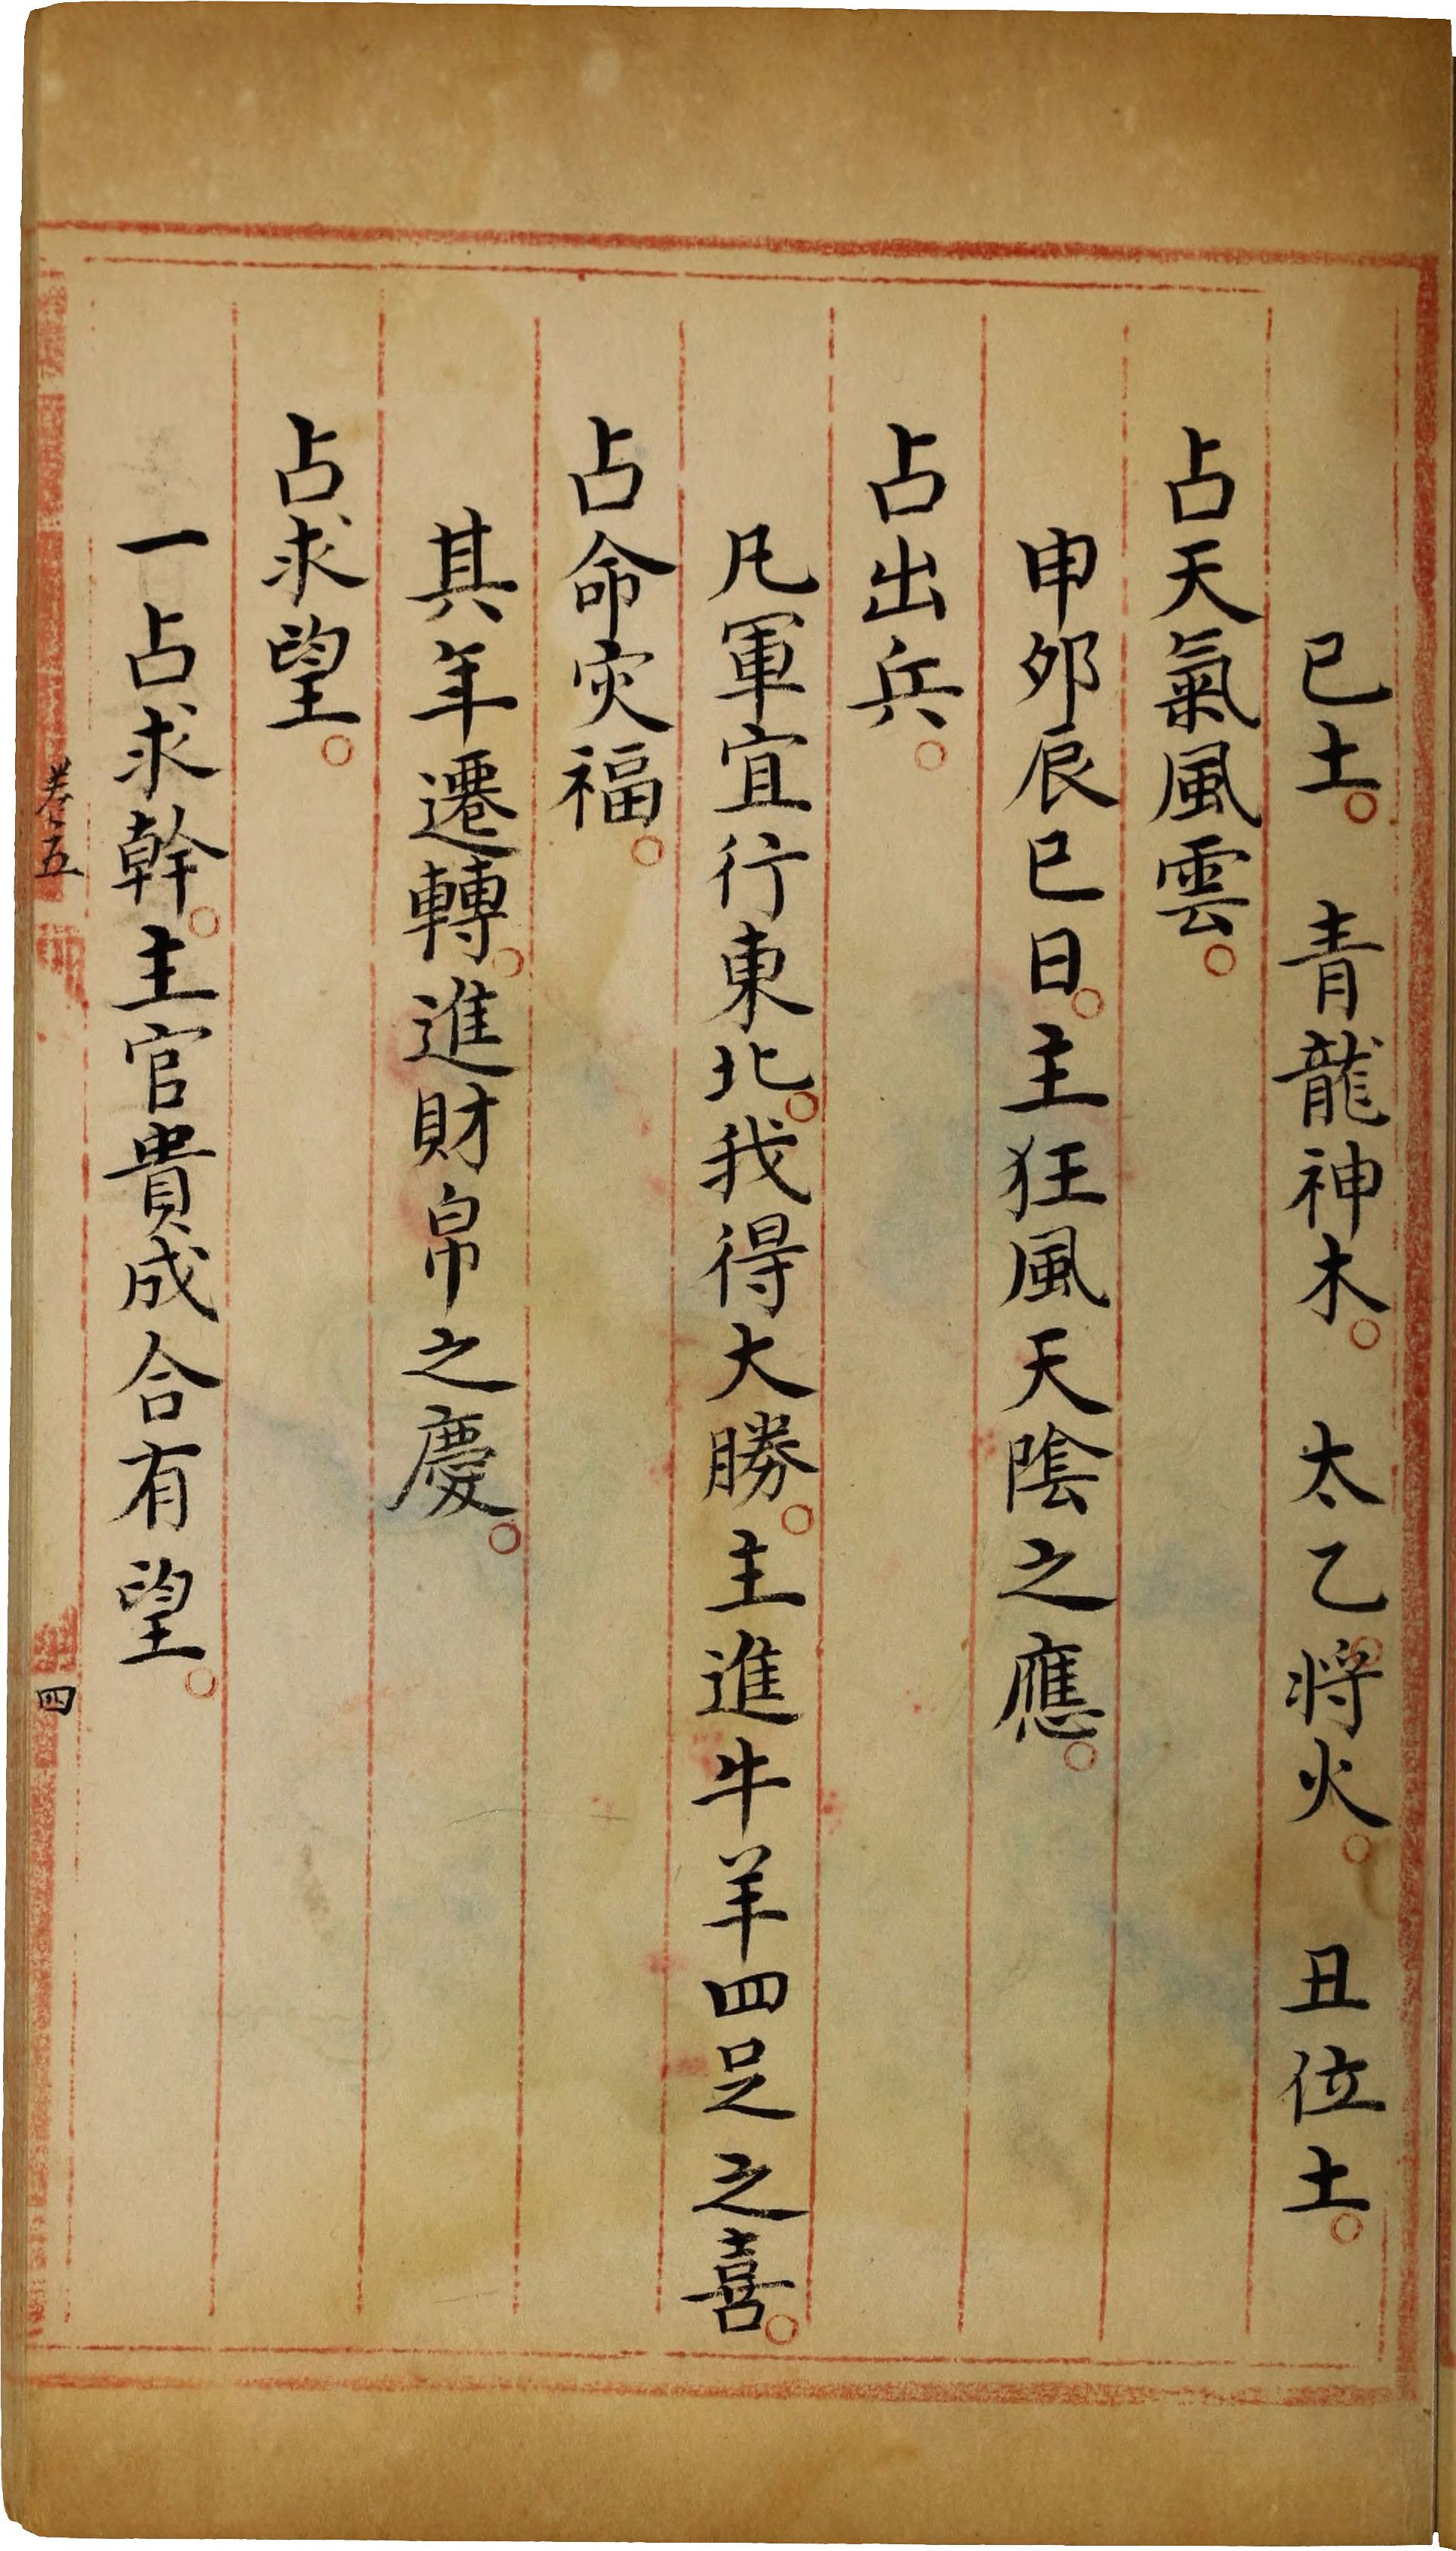 已土。 青龍神木。 太乙。將火。 丑位土。
占天氣風雲。
申夘辰巳日。主狂風天陰之應。
占出兵。
凡軍宜行東北。我得大勝。主進牛羊四足之喜。
占命灾福。
其年遷轉。進財帛之慶。
占求望。
一占求幹。主官貴成合有望。
卷五
四